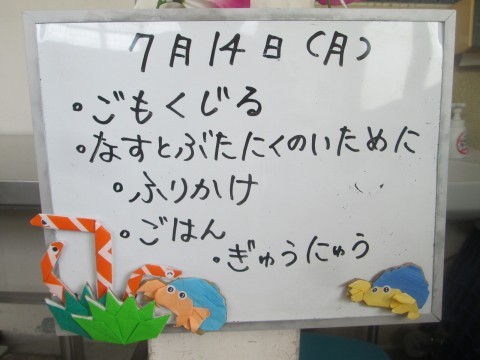 7月14日(月)
・ごもくじる
・なすとぶたにくのいために
・ふりかけ
・ごはん
・ぎゅうにゅう